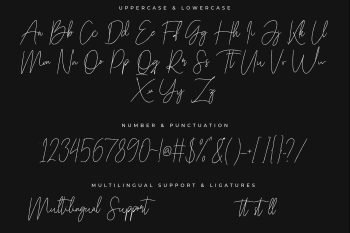 UPPERCASE & LOWERCASE
Aa Bb Cc Dd Ee Ff Gg Hh Ii Jj Kk Ll
Mm Nn Oo Pp Qq Rr Ss Tt Uu Vv Ww
Xx Yy Zz
NUMBER & PUNCTUATION
1234567890-!@#$%^&()-+[]:?/
MULTILINGUAL SUPPORT & LIGATURES
Multilingual Support tt st ll